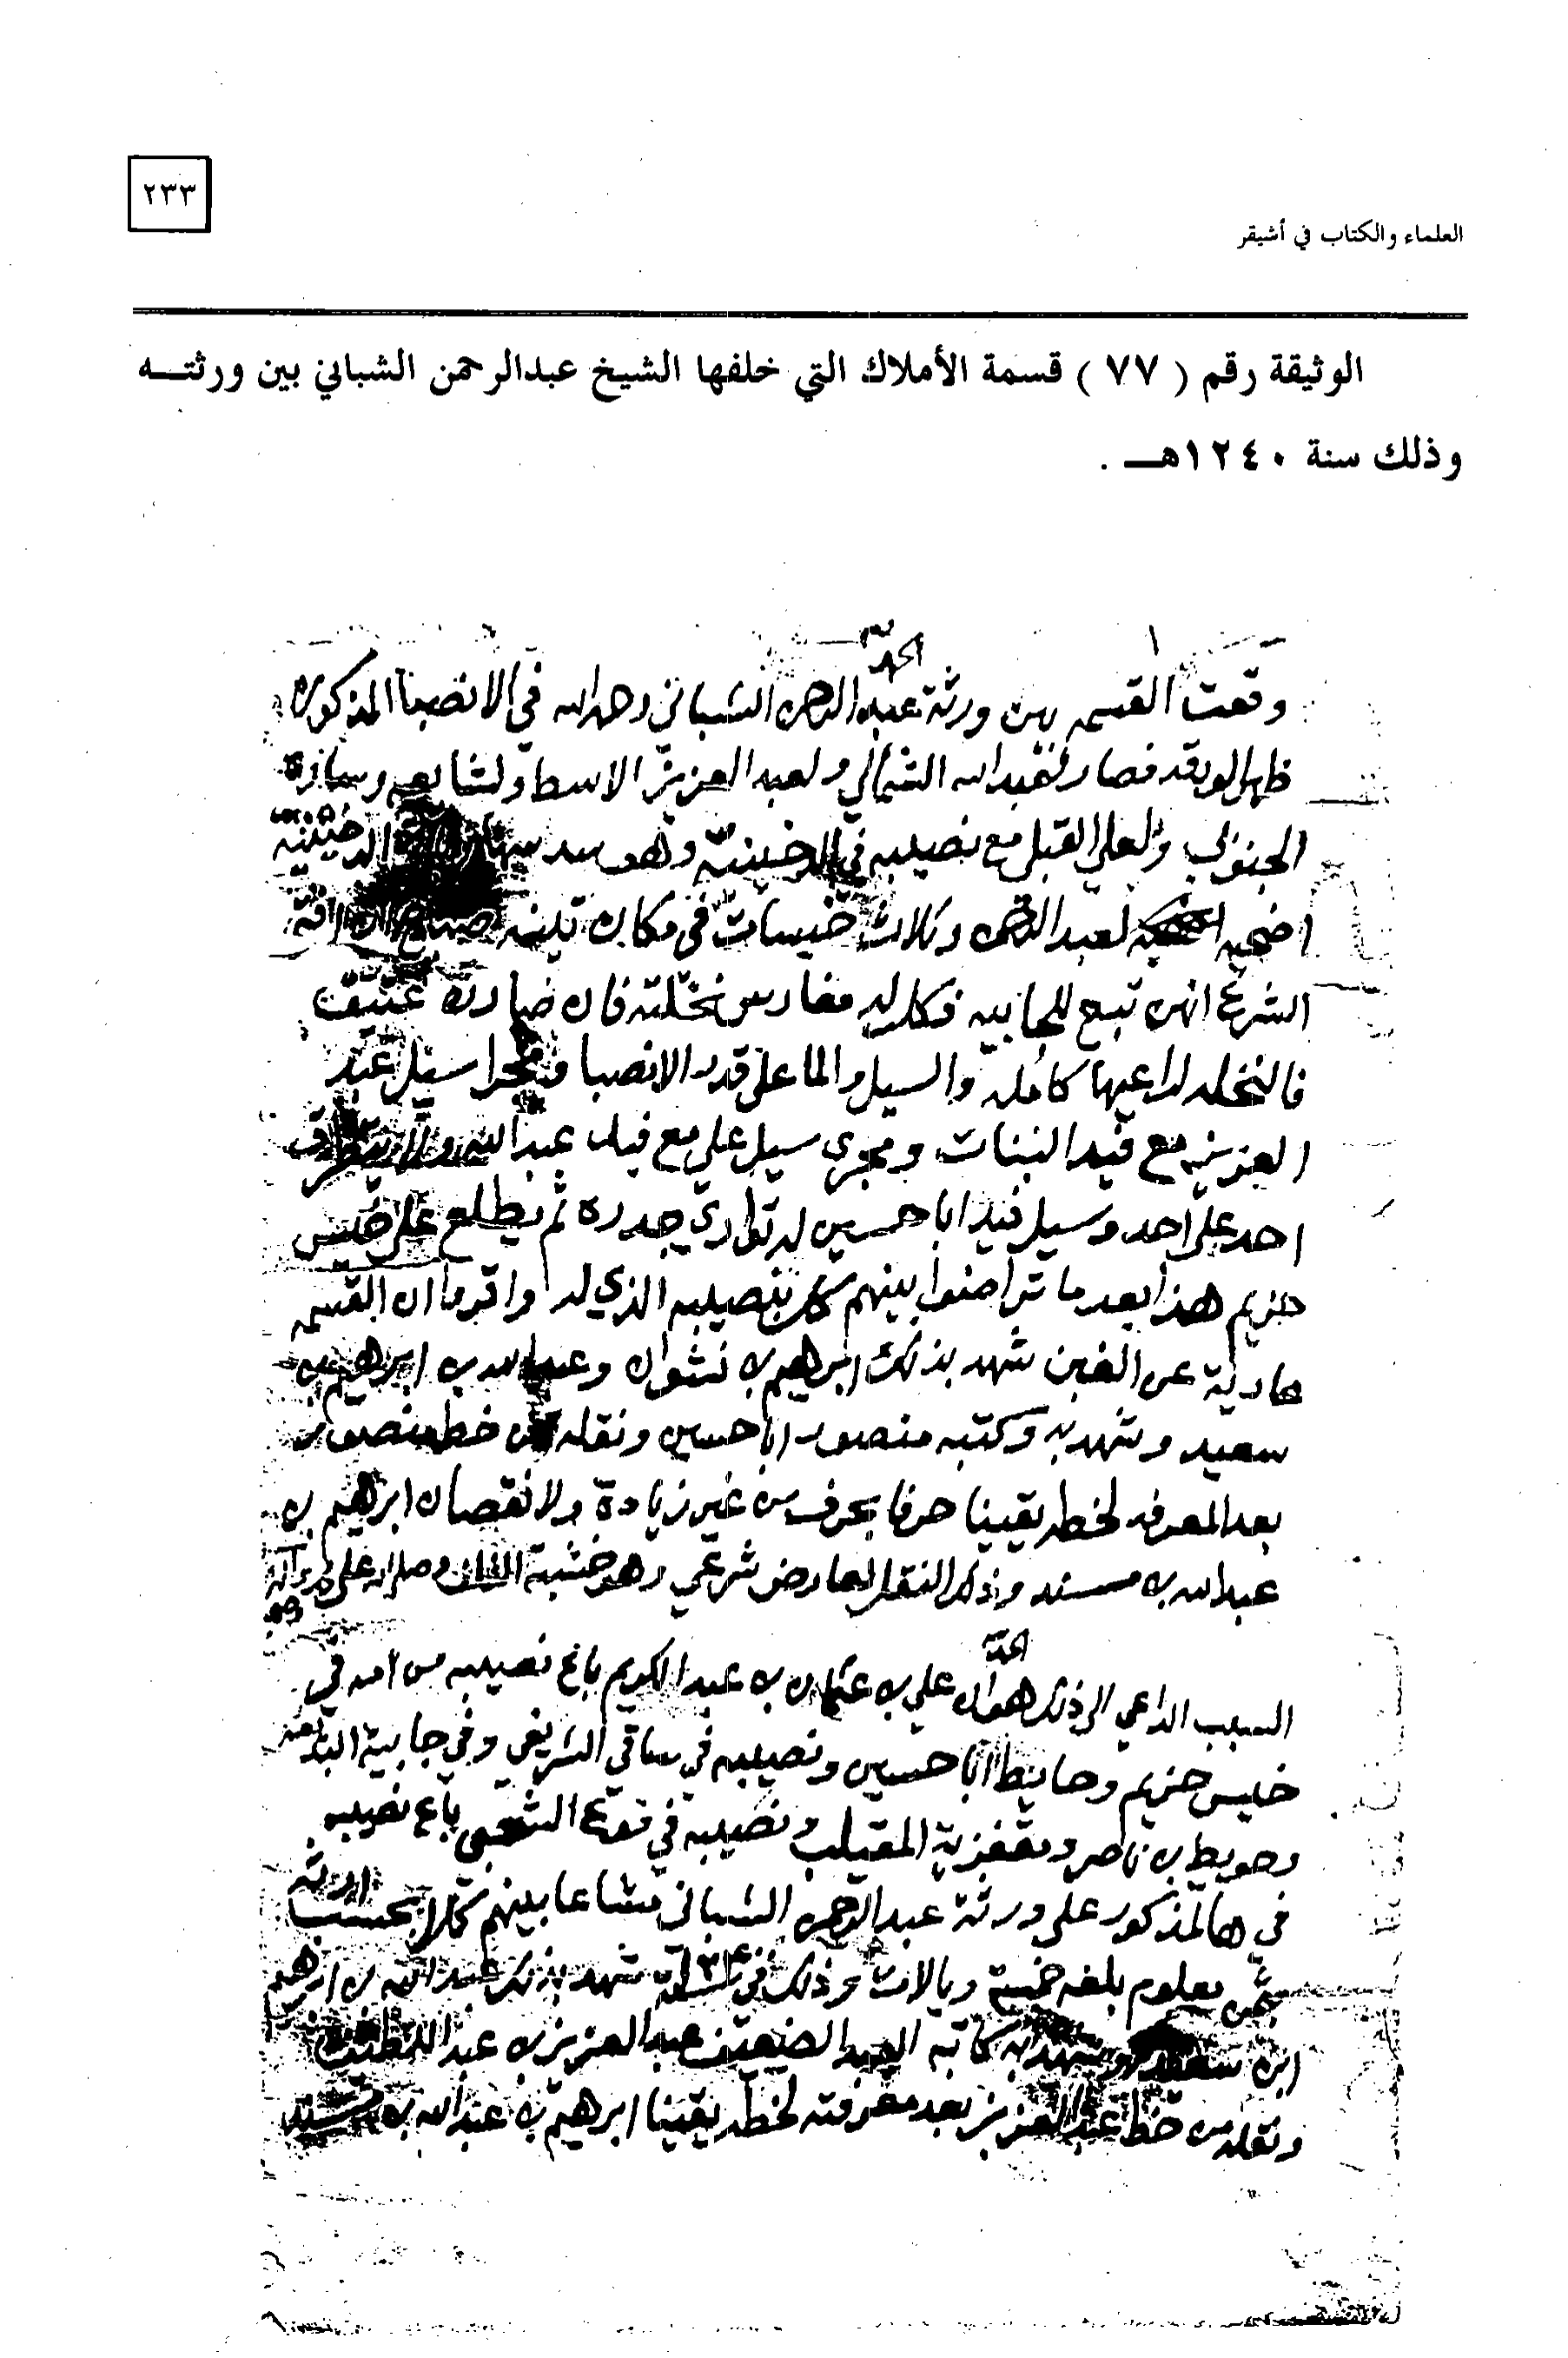 ٢٣٣
العلماء والكتاب في أشيقر
الوثيقة رقم ( ٧٧ ) قسمة الأملاك التي خلفها الشيخ عبدالرحمن الشباني بين ورثتـــه
وذلك سنة ١٢٤٠هـــ .
الحمد لله
وقعت القسمه بين ورثة عبد الرحمن الشباني رحمه الله في الانصبا المذكوره
فصار لعبد الله الشمالي ولعبد العزيز الاسط ولشايعه وساره
الجنوبي ولعلي القبلي مع نصيبه في الدخينية وهو سدس الدخينية
اضحيه لعبد الرحمن وثلاث خيسات في مكان
الشرع انهن تبع للجابيه فكل له مغارس نخلته فان
فالنخله لراعيها كامله والسيل والما على قدر الانصبا ومجرا سيل عبد
العزيز مع قيد البنات ومجرى سيل علي مع عبد الله ولا
احد على احد وسيل قيد ابا حسين له جدره ثم يطلع على خيس
حزيم هذا بعد ما تراضوا بينهم كل بنصيبه الذي له واقروا ان القسمه
عادلة عن الغبن شهد بذلك ابرهيم بن نشوان وعبد الله بن ابرهيم بن
سعيد وشهد به وكتبه منصور ابا حسين ونقله من خط منصور
بعد المعرفه لخطه يقينا حرفا بحرف من غير زيادة ولا نقصان ابرهيم بن
عبد الله بن مسند وذلك النقل لعارض شرعي وهو خشية التلف وصلى الله على محمد وآله
الحمد لله
السبب الداعي الى ذلك هو ان علي بن عثمان بن عبد الكريم باع نصيبه من امه في
خيس حزيم وحايط ابا حسين ونصيبه في ساقي الشريفي وفي جابية
وحويط بن ناصر المقيلب ونصيبه في باع نصيبه
في هالمذكور على ورثة عبد الرحمن الشباني مشاعا بينهم كلا بحسب ارثه
بثمن معلوم بلغه خمسة ريالات وذلك في شهد بذلك عبد الله بن ابرهيم
ابن سعيد وشهد به كاتبه العبد الضعيف عبد العزيز بن عبد اللطيف
ونقله من خط عبد العزيز بعد معرفته لخطه يقينا ابرهيم بن عبد الله بن مسند